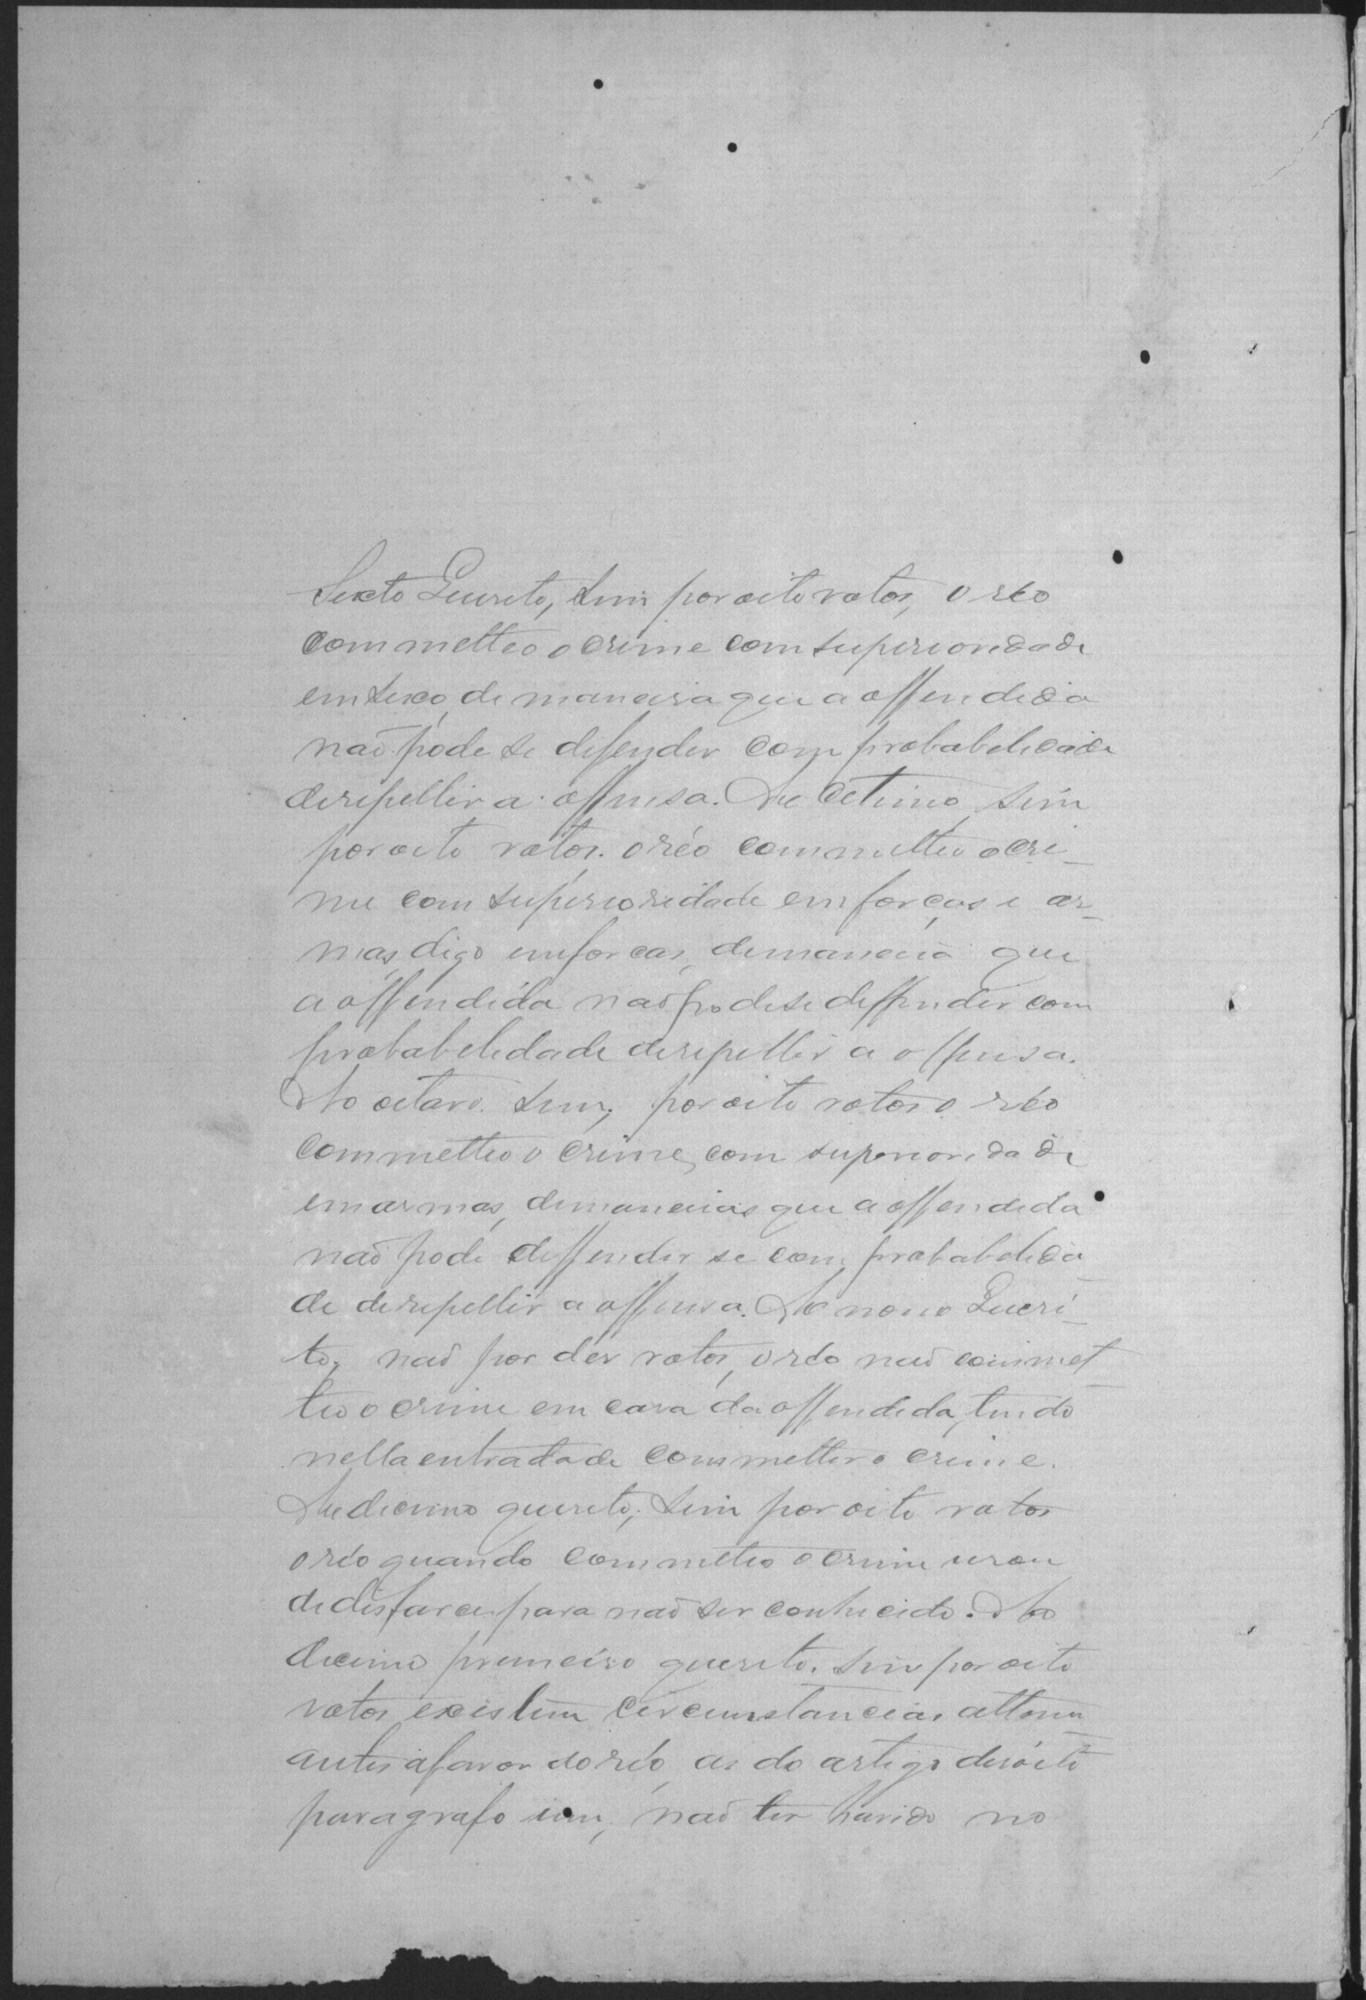 Sexto Quesito, Sim por oito votos, o réo
commetteo o crime com superioridade
em sexo, de maneira que a offendida
não póde se difender com probabelidade
de repellir a offensa. Ao cetimo, sim
por oito votos. o réo commetteo o cri-
me com superioridade em forças e ar-
mas, digo em forcas, de maneira que
a offendida não pode se deffender com
probabelidade de repellir a offensa.
Ao oitavo. Sim, por oito votos o réo
commetteo o crime, com superioridade
em armas, de maneiras que a offendida
não pode deffender se com probabelida
de de repellir a offensa. Ao nono Quesi-
to, não por dez votos, o réo não commet
teo o crime em casa da offendida, tendo
nella entrado de commetter o crime.
Ao decimo quesito, Sim por oito votos
o réo quando commetteo o crime usou
de disfarce para não ser conhecido. Ao
decimo premeiro quesito. Sim por oito
votos existem circumstancias attenu
antes a favor do réo, as do artigo desóito
paragrafo um, não ter havido no